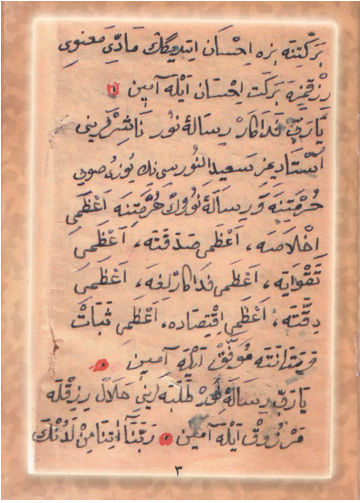 بركتنه بزه احسان ايتديگك مادى معنوى
رزقمزه بركت احسان ايله آمين
ياربى فداكار رسالۀ نور ناشرلرينى
استاديمز سعيد النورسى نك يوزى صويى
حرمتنه و رسالۀ نورك حرمتنه اعظمى
اخلاصه، اعظمى صدقته، اعظمى
تقوايه، اعظمى فداكارلغه، اعظمى
دقته، اعظمى اقتصاده، اعظمى ثبات
و متانته موفق ايله آمين
ياربى رسالۀ نور طلبه لرينى حلال رزقله
مرزوق ايله آمين ربنا اتنا من لدنك
٣